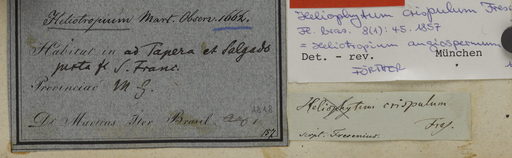 Heliotropium Mart. Observ. 1662.
Habitat in ad Tapera et Salgado
juxta fl S. Franc.
Provinciae M. G.
Dr Martius Iter Brasil.
157
Heliophytum crispulum Fres
Fl. bras. 8(1): 45. 1857
= Heliotropium angiospermum
Det. – rev. München
FÖRTHER
Heliophytum crispulum
Fres.
scrpt. Fresenius.